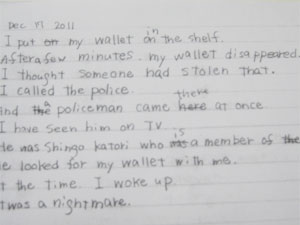 Dec 17 2011
I put my wallet in the shelf.
After a few minutes. my wallet disappeared.
I thought someone had stolen that.
I called the police.
And a policeman came there at once
I have seen him on TV.
He was Shingo katori who is a member of the
e looked for my wallet with me.
t the time. I woke up.
t was a nightmare.